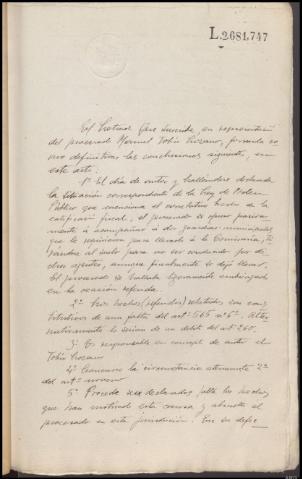 L.2681,747
El Letrado que suscribe, en representación
del procesado Manuel Tobío Lozano, formula co
mo definitivas las conclusiones siguientes, en
este acto.
1ª El día de autos, y hallándose declarada
la situación correspondiente de la Ley de Orden
Público que menciona el correlativo hecho de la
calificación fiscal, el procesado se opuso pasiva-
mente á acompañar á dos guardias municipales
que le requirieron para llevarlo á la Comisaría, ti
rándose al suelo para no ser conducido por di-
chos agentes, aunque finalmente lo dejó llevar.
El procesado se hallaba ligeramente embriagado
en la ocasión referida.
2ª Los hechos (referidos) relatados, son cons
titutivos de una falta del artº 565 nº 6º. Alter
nativamente lo serían de un delito del artº 260.
3ª Es responsable en concepto de autor el
Tobío Lozano
4ª Concurre la circunstancia atenuante 2ª
del artº noveno
5ª Procede sea declarados falta los hechos
que han motivado esta causa y absuelto el
procesado en esta jurisdicción. En su defec-